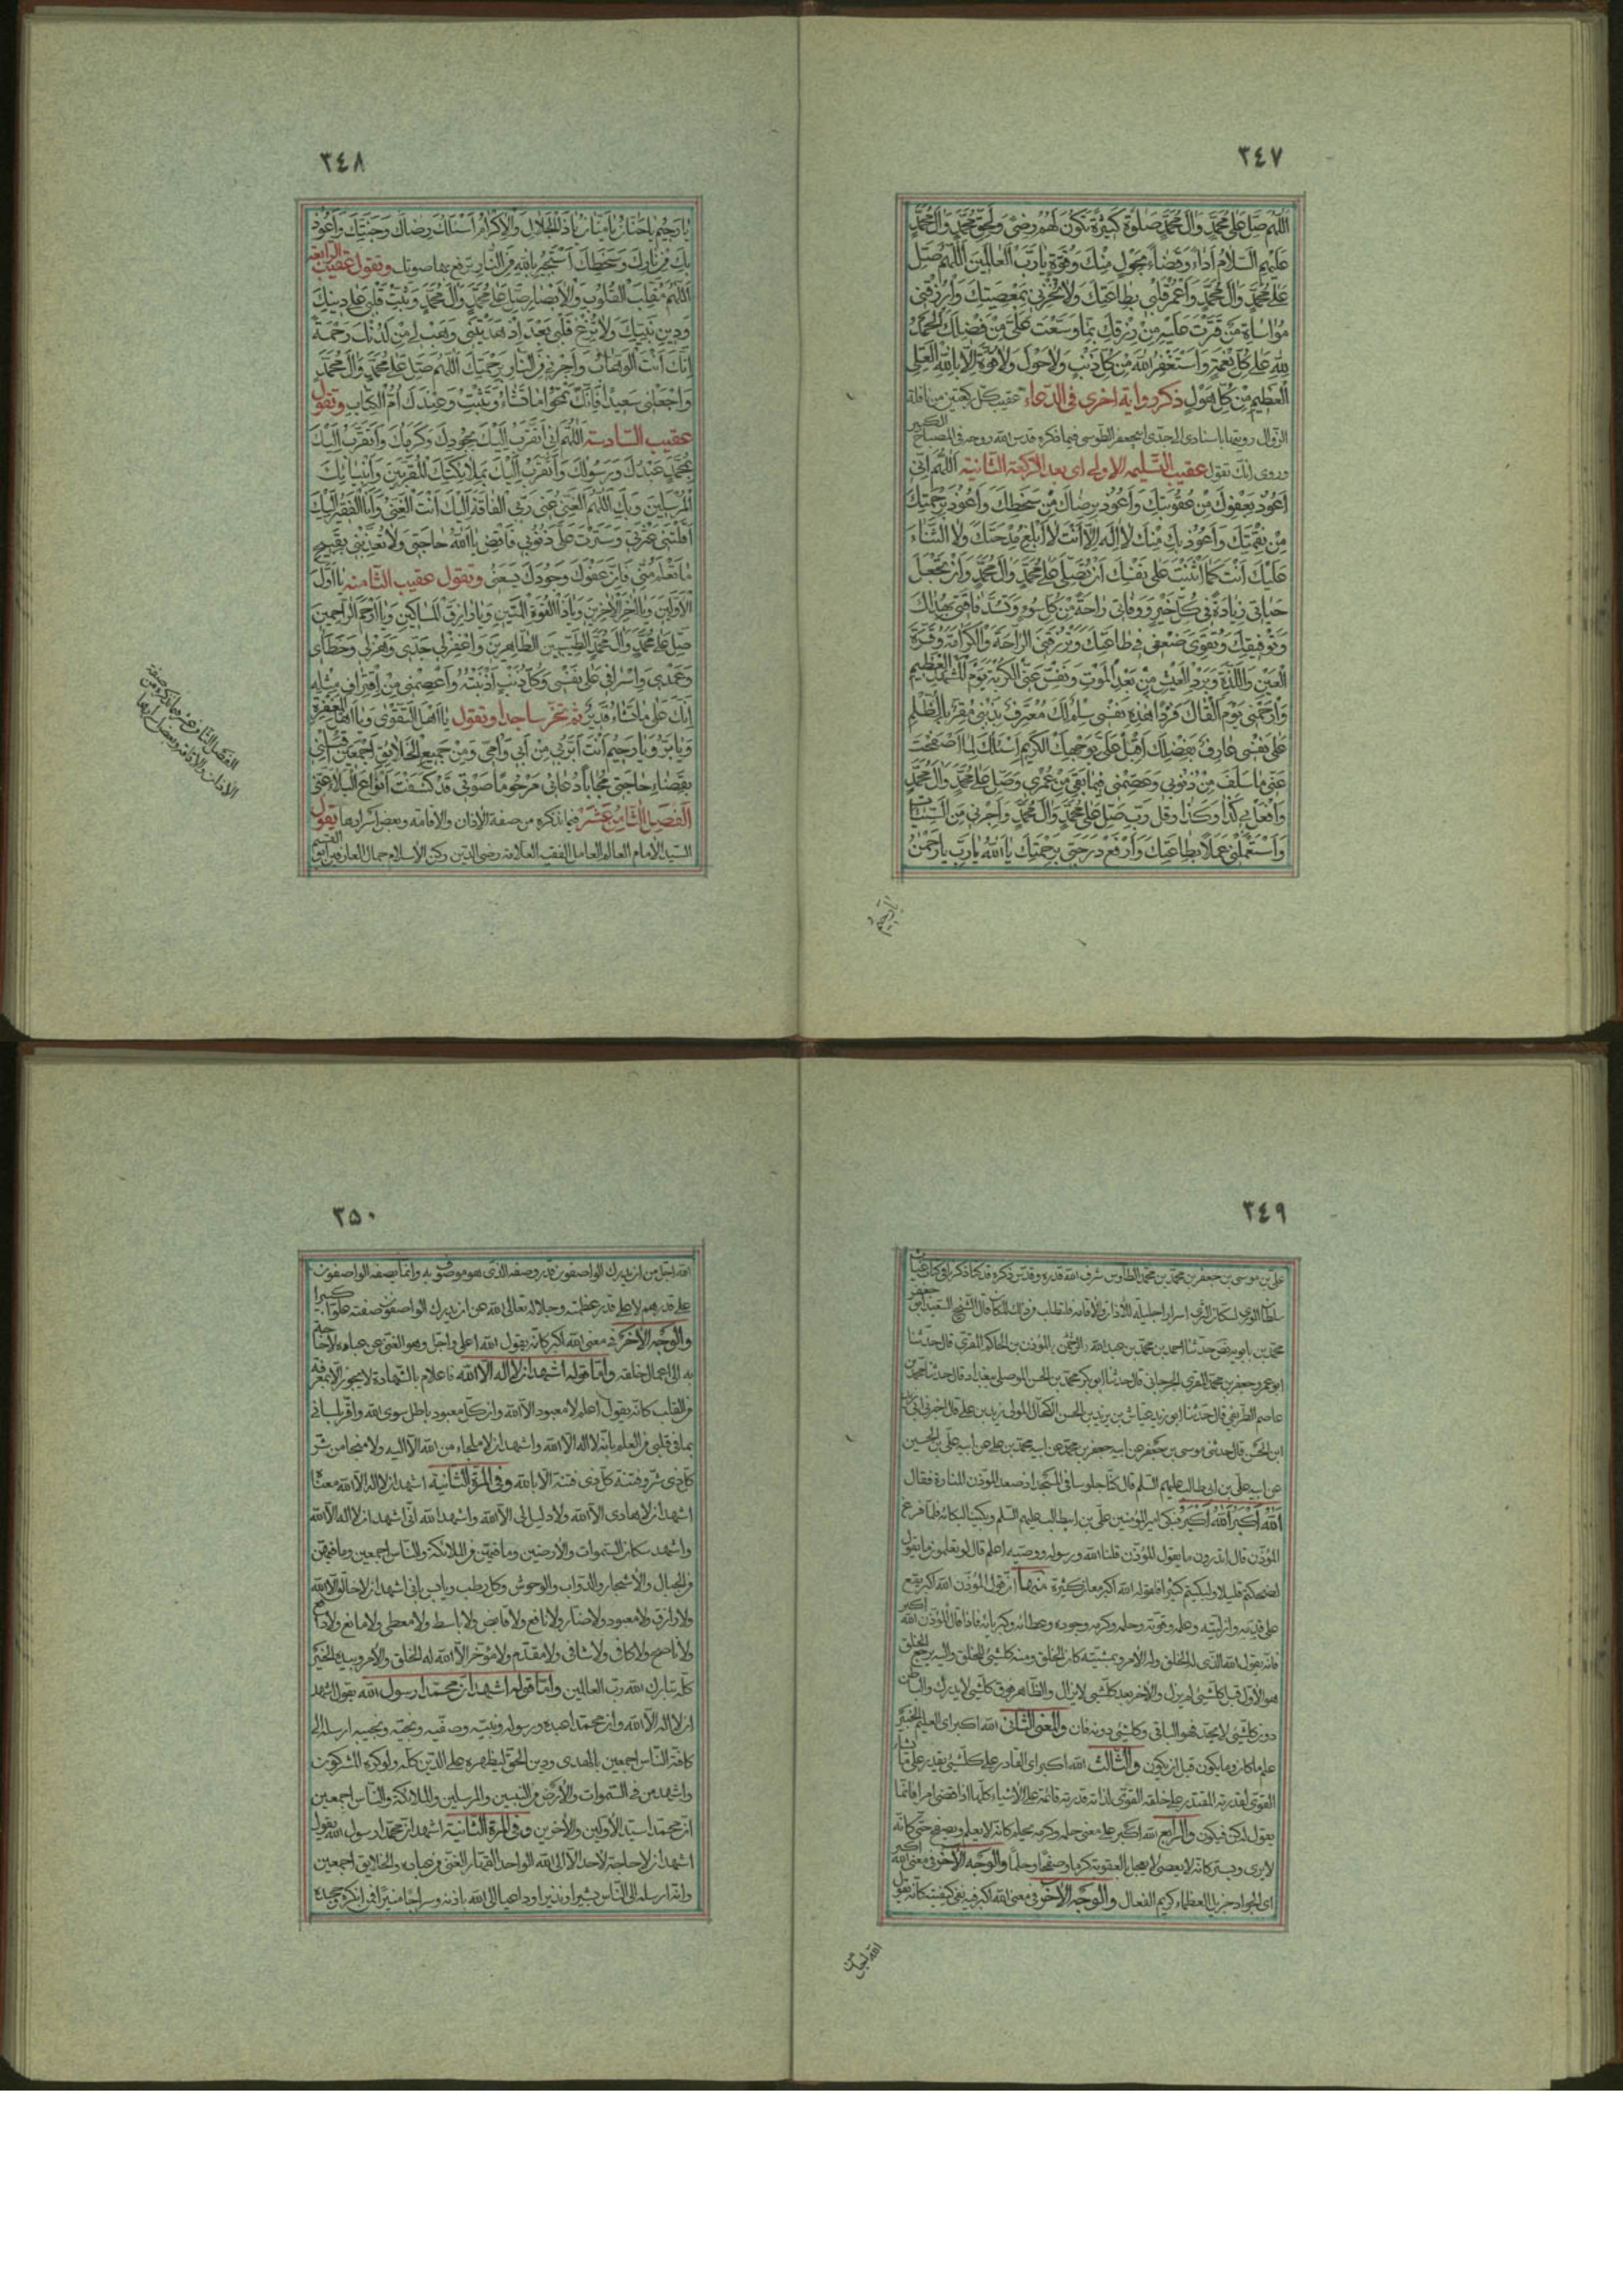 ٣٤٧
اللهم صل على محمد وال محمد صلوة كثيرة تكون لهم رضى ولحق محمد وال محمد
عليهم السلام اداء وقضاء بحول منك وقوة يا رب العالمين اللهم صل
على محمد وال محمد واعمر قلبي بطاعتك ولا تخزني بمعصيتك وارزقني
مواساة من قترت عليه من رزقك بما وسعت على من فضلك الحمد
لله على كل نعمة واستغفر الله من كل ذنب ولا حول ولا قوة الا بالله العلى
العظيم من كل هول ذكر رواية اخرى فى الدعاء عقيب كل ركعتين من نافلة
الزوال رويتها باسنادى الى جدى ابى جعفر الطوسى فيما ذكره قدس الله روحه فى المصباح الكبير
وروى انك تقول عقيب التسليمة الاولى اى بعد الركعة الثانية اللهم انى
اعوذ بعفوك من عقوبتك واعوذ برضاك من سخطك واعوذ برحمتك
من نقمتك واعوذ بك منك لا اله الا انت لا ابلغ مدحتك ولا الثناء
عليك انت كما اثنيت على نفسك ان تصلى على محمد وال محمد وان تجعل
حياتى زيادة فى كل خير ووفاتى راحة من كل سوء وتسد فاقتى بهداك
وتوفيقك وتقوى ضعفى فى طاعتك وترزقنى الراحة والكرامة وقرة
العين واللذة وبرد العيش من بعد الموت ونفس عنى الكربة يوم المشهد العظيم
وارحمنى يوم القاك فردا هذه نفسى سلم لك معترف بذنبى مقر بالظلم
على نفسى عارف بفضلك على بوجهك الكريم اسئلك لما صفحت
عنى ما سلف من ذنوبى وعصمتنى فيما بقى من عمرى وصل على محمد وال محمد
وافعل بى كذا وكذا وقل رب صل على محمد وال محمد واجرنى من السيئات
واستعملنى عملا بطاعتك وارفع درجتى برحمتك يا الله يا رب يا رحمن
يا رحيم
٣٤٨
يا رحيم يا حنان يا منان يا ذا الجلال والاكرام اسئلك رضاك وجنتك واعوذ
بك من نارك وسخطك استجير بالله من النار ترفع بها صوتك وتقول عقيب الرابعة
اللهم مقلب القلوب والابصار صل على محمد وال محمد وثبت قلبى على دينك
ودين نبيك ولا تزغ قلبى بعد اذ هديتنى وهب لى من لدنك رحمة
انك انت الوهاب واجرنى من النار برحمتك اللهم صل على محمد وال محمد
واجعلنى سعيدا فانك تمحو ما تشاء وتثبت وعندك ام الكتاب وتقول
عقيب السادسة اللهم انى اتقرب اليك بجودك وكرمك واتقرب اليك
بمحمد عبدك ورسولك واتقرب اليك بملائكتك المقربين وانبيائك
المرسلين وبك اللهم الغنى عنى وبى الفاقة اليك انت الغنى وانا الفقير اليك
اقلتنى عثرتى وسترت على ذنوبى فاقض يا الله حاجتى ولا تعذبنى بقبيح
ما تعلم منى فان عفوك وجودك يسعنى وتقول عقيب الثامنة يا اول
الاولين ويا اخر الاخرين ويا ذا القوة المتين ويا رازق المساكين ويا ارحم الراحمين
صل على محمد وال محمد الطيبين الطاهرين واغفر لى جدى وهزلى وخطاى
وعمدى واسرافى على نفسى وكل ذنب اذنبته واعصمنى من اقتراف مثله
انك على ما تشاء قدير ثم تخر ساجدا وتقول يا اهل التقوى ويا اهل المغفرة
ويا بر ويا رحيم انت ابر بى من ابى وامى ومن جميع الخلائق اجمعين اقلبنى
بقضاء حاجتى مجابا دعائى مرحوما صوتى قد كشفت انواع البلاء عنى
الفصل الثامن عشر فيما نذكره من صفة الاذان والاقامة وبعض اسرارها يقول
السيد الامام العالم العامل الفقيه العلامة رضى الدين ركن الاسلام جمال العارفين ابو القسم
الفصل الثامن عشر فيما نذكره من صفة
الاذان والاقامة وبعض اسرارها
٣٤٩
على بن موسى بن جعفر بن محمد بن محمد الطاوس شرف الله قدره وقدس ذكره قد كنا ذكرنا فى كتاب غياث
سلطان الورى لسكان الثرى اسرارا جليلة للاذان والاقامة فتطلب من ذلك الكتاب قال الشيخ السعيد ابو جعفر
محمد بن بابويه رض حدثنا احمد بن محمد بن عبد الرحمن المؤذن بن الحاكم المقرى قال حدثنا
ابو عمرو جعفر بن محمد المقرى الجرجانى قال حدثنا ابو بكر محمد بن الحسن الموصلى ببغداد قال حدثنا محمد بن
عاصم الطريفى قال حدثنا ابو زيد عياش بن يزيد بن الحسن الكحال المولى زيد بن على قال اخبرنى ابى
ابن الحسن قال حدثنى موسى بن جعفر عن ابيه جعفر بن محمد عن ابيه محمد بن على عن ابيه على بن الحسين
عن ابيه على بن ابى طالب عليهم السلم قال كنا جلوسا فى المسجد اذ صعد المؤذن المنارة فقال
الله اكبر الله اكبر فبكى امير المؤمنين على بن ابيطالب عليهم السلم وبكينا لبكائه فلما فرغ
المؤذن قال اتدرون ما يقول المؤذن قلنا الله ورسوله ووصيه اعلم قال لو تعلمون ما يقول
لضحكتم قليلا ولبكيتم كثيرا فلقوله الله اكبر معان كثيرة منها ان قول المؤذن الله اكبر يقع
على قدمه وازليته وعلمه وقوته وحلمه وكرمه وجوده وعطائه وكبريائه فاذا قال المؤذن الله اكبر
فانه يقول الله الذى له الخلق وله الامر وبمشيته كان الخلق ومنه كلشئ للخلق واليه يرجع الخلق
هو الاول قبل كلشئ لم يزل والاخر بعد كلشئ لا يزال والظاهر فوق كلشئ لا يدرك والباطن
دون كلشئ لا يحد فهو الباقى وكلشئ دونه فان والمعنى الثانى الله اكبر اى العليم الخبير
علم ما كان وما يكون قبل ان يكون والثالث الله اكبر اى القادر على كلشئ يقدر على ما يشاء
القوى لقدرته المقتدر على خلقه القوى لذاته قدرته قائمة على الاشياء كلها اذا قضى امرا فانما
يقول له كن فيكون والرابع الله اكبر على معنى حلمه وكرمه يحلم كانه لا يعلم ويصفح حتى كانه
لا يرى ويستر كانه لا يعصى لا يعجل بالعقوبة كرما وصفحا وحلما والوجه الاخر فى معنى الله اكبر
اى الجواد جزيل العطاء كريم الفعال والوجه الاخر فى معنى الله اكبر فيه نفى كيفيته كانه يقول
الله اجل من
٣٥٠
الله اجل من ان يدرك الواصفون قدر وصفه الذى هو موصوف به وانما يصفه الواصفون
على قدرهم لا على قدر عظمته وجلاله تعالى الله عن ان يدرك الواصفون صفته علوا كبيرا
والوجه الاخر فى معنى الله اكبر كانه يقول الله اعلى واجل وهو الغنى عن عباده لا حاجة
به الى اعمال خلقه واما قوله اشهد ان لا اله الا الله فاعلام بالشهادة لا يجوز الا بمعرفة
من القلب كانه يقول اعلم لا معبود الا الله وان كل معبود باطل سوى الله واقر بلسانى
بما فى قلبى من العلم بانه لا اله الا الله واشهد ان لا ملجاء من الله الا اليه ولا منجا من شر
كل ذى شر وفتنة كل ذى فتنة الا بالله وفى المرة الثانية اشهد ان لا اله الا الله معناه
اشهد ان لا هادى الا الله ولا دليل الى الا الله واشهد الله انى اشهد ان لا اله الا الله
واشهد سكان السموات والارضين وما فيهن من الملائكة والناس اجمعين وما فيهن
من الجبال والاشجار والدواب والوحوش وكل رطب ويابس بانى اشهد ان لا خالق الا الله
ولا رازق ولا معبود ولا ضار ولا نافع ولا قابض ولا باسط ولا معطى ولا مانع ولا دافع
ولا ناصح ولا كافى ولا شافى ولا مقدم ولا مؤخر الا الله له الخلق والامر وبيده الخير
كله تبارك الله رب العالمين واما قوله اشهد ان محمدا رسول الله يقول اشهد
ان لا اله الا الله وان محمدا عبده ورسوله ونبيه وصفيه ونجيه ونجيبه ارسله الى
كافة الناس اجمعين بالهدى ودين الحق ليظهره على الدين كله ولو كره المشركون
واشهد من فى السموات والارض من النبيين والمرسلين والملائكة والناس اجمعين
ان محمدا سيد الاولين والاخرين وفى المرة الثانية اشهد ان محمدا رسول الله يقول
اشهد ان لا حاجة لاحد الا الى الله الواحد القهار الغنى عن عباده والخلايق اجمعين
وانه ارسله الى الناس بشيرا ونذيرا وداعيا الى الله باذنه وسراجا منيرا فمن انكره وجحده